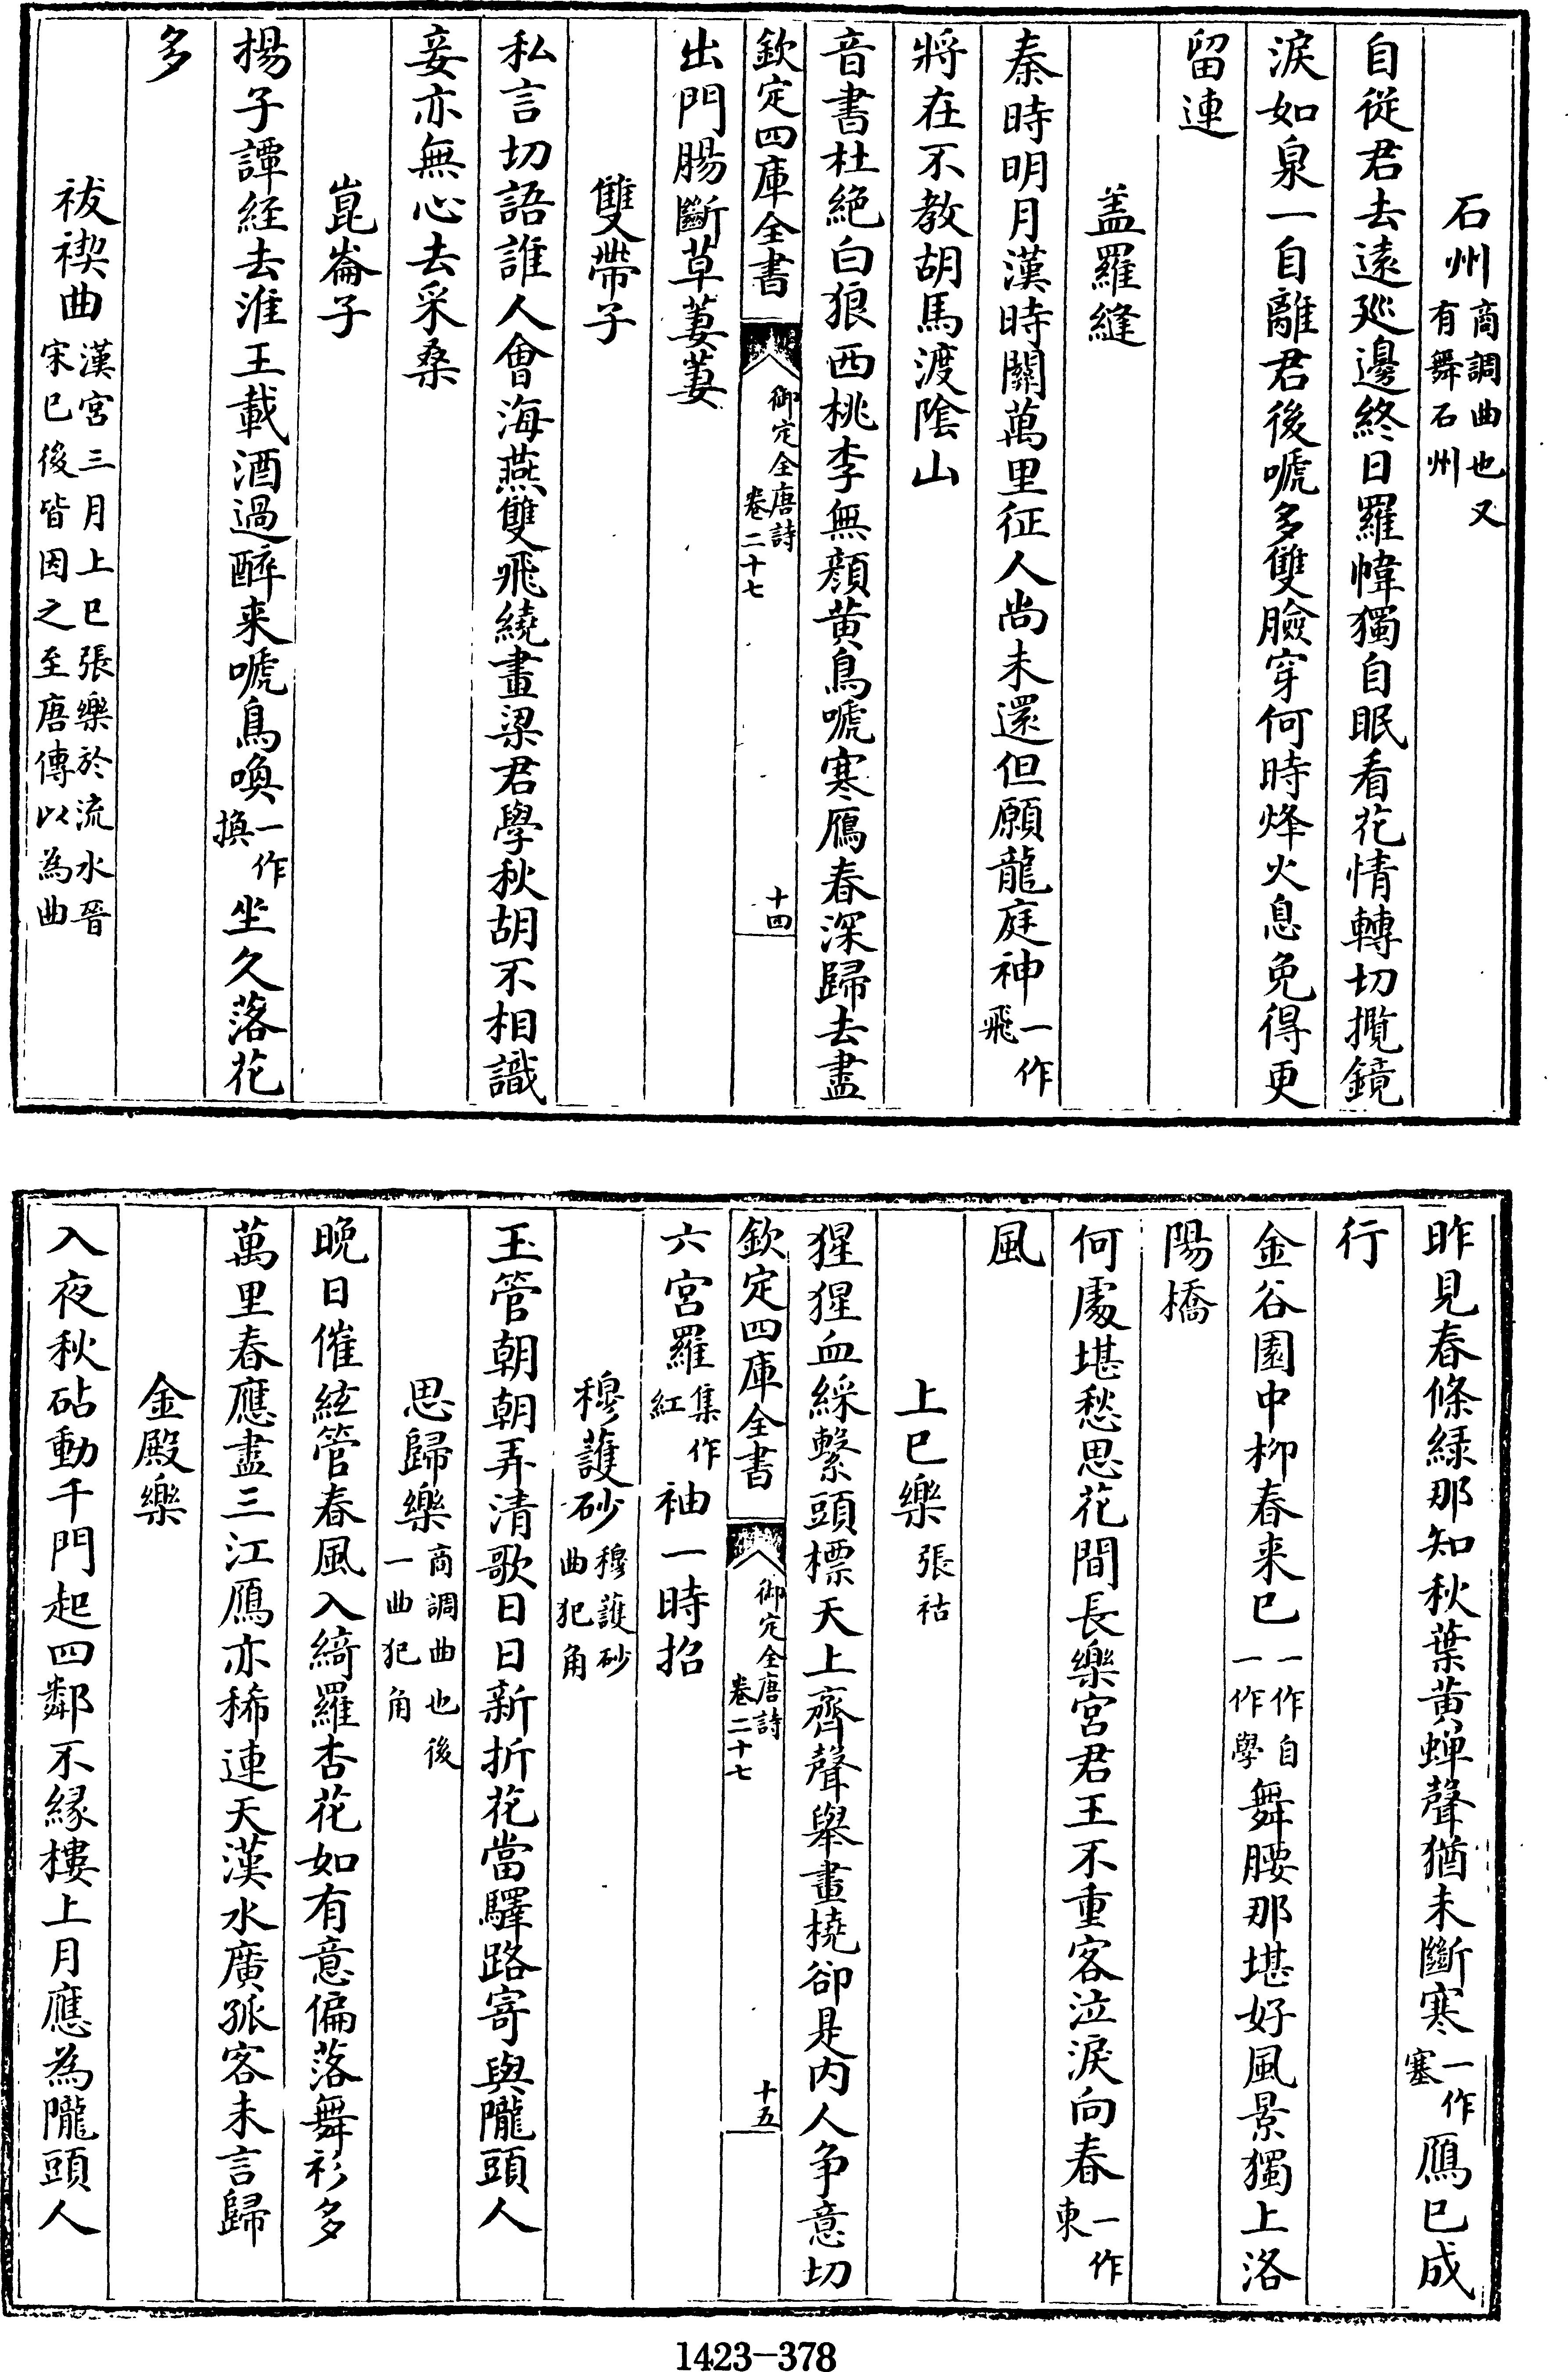 石州商調曲也又有舞石州
自從君去遠廵邊終日羅幃獨自眠看花情轉切攬鏡
淚如泉一自離君後嗁多雙臉穿何時烽火息免得更
留連
盖羅縫
秦時明月漢時關萬里征人尚未還但願龍庭神一作飛
將在不教胡馬渡隂山
音書杜絶白狼西桃李無顔黄鳥嗁寒鴈春深歸去盡
欽定四庫全書 御定全唐詩卷二十七 十四
出門腸斷草萋萋
雙帶子
私言切語誰人會海燕雙飛繞畫梁君學秋胡不相識
妾亦無心去采桑
崑崙子
楊子譚經去淮王載酒過醉来嗁鳥喚一作換坐久落花
多
祓禊曲漢宮三月上巳張樂於流水晉宋巳後皆因之至唐傳以為曲
昨見春條緑那知秋葉黄蟬聲猶未斷寒一作塞鴈已成
行
金谷園中柳春来已一作自一作學舞腰那堪好風景獨上洛
陽橋
何處堪愁思花間長樂宮君王不重客泣淚向春一作東
風
上巳樂張祜
猩猩血綵繫頭標天上齊聲舉畫橈卻是内人争意切
欽定四庫全書 御定全唐詩卷二十七 十五
六宮羅集作紅袖一時招
穆護砂穆護砂曲犯角
玉管朝朝弄清歌日日新折花當驛路寄與隴頭人
思歸樂商調曲也後一曲犯角
晚日催絃管春風入綺羅杏花如有意偏落舞衫多
萬里春應盡三江鴈亦稀連天漢水廣孤客未言歸
金殿樂
入夜秋砧動千門起四鄰不緣樓上月應為隴頭人
1423-378